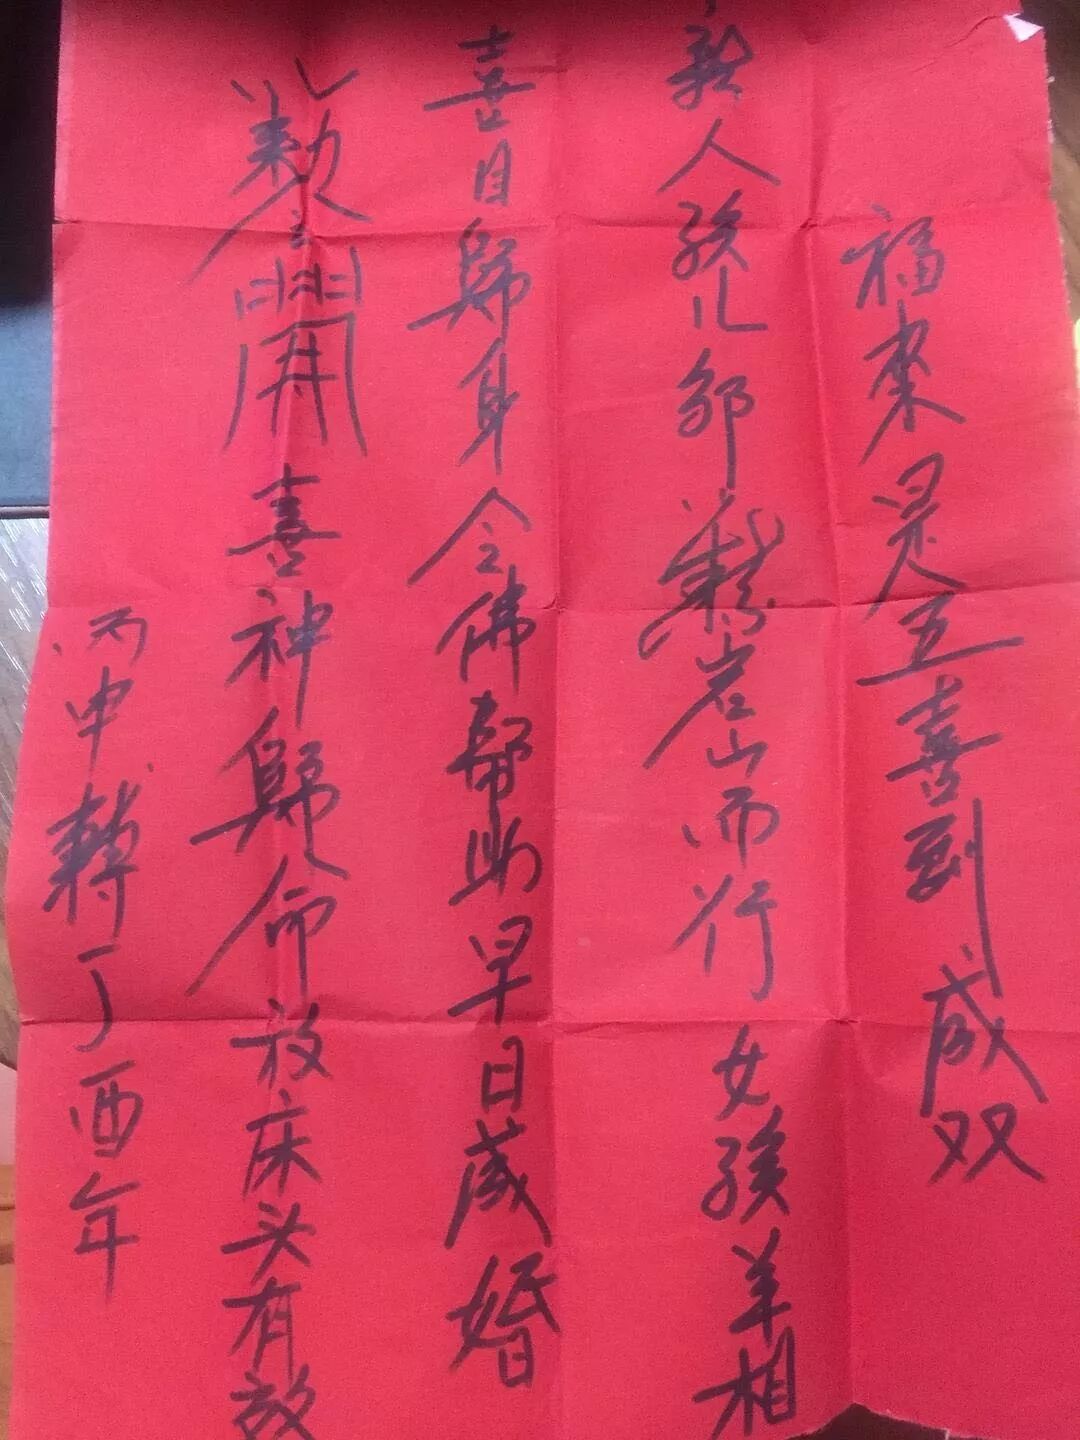 福来是五喜到成双
新人孩儿邹 岩山而行女孩羊相
喜目归身令佛帮助早日成婚
敕令 喜神归命放床头有效
丙申转丁酉年